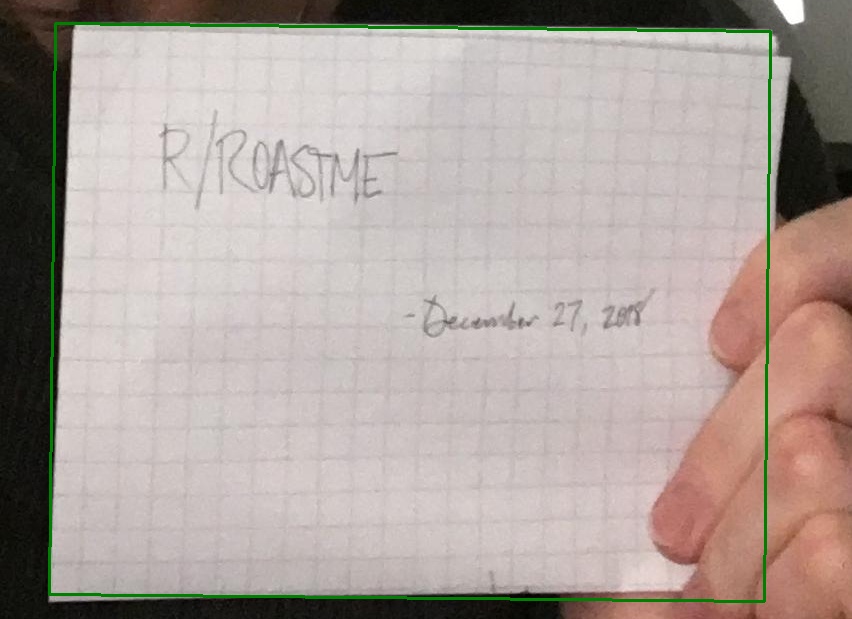 R/ROASTME
-December 27, 2018